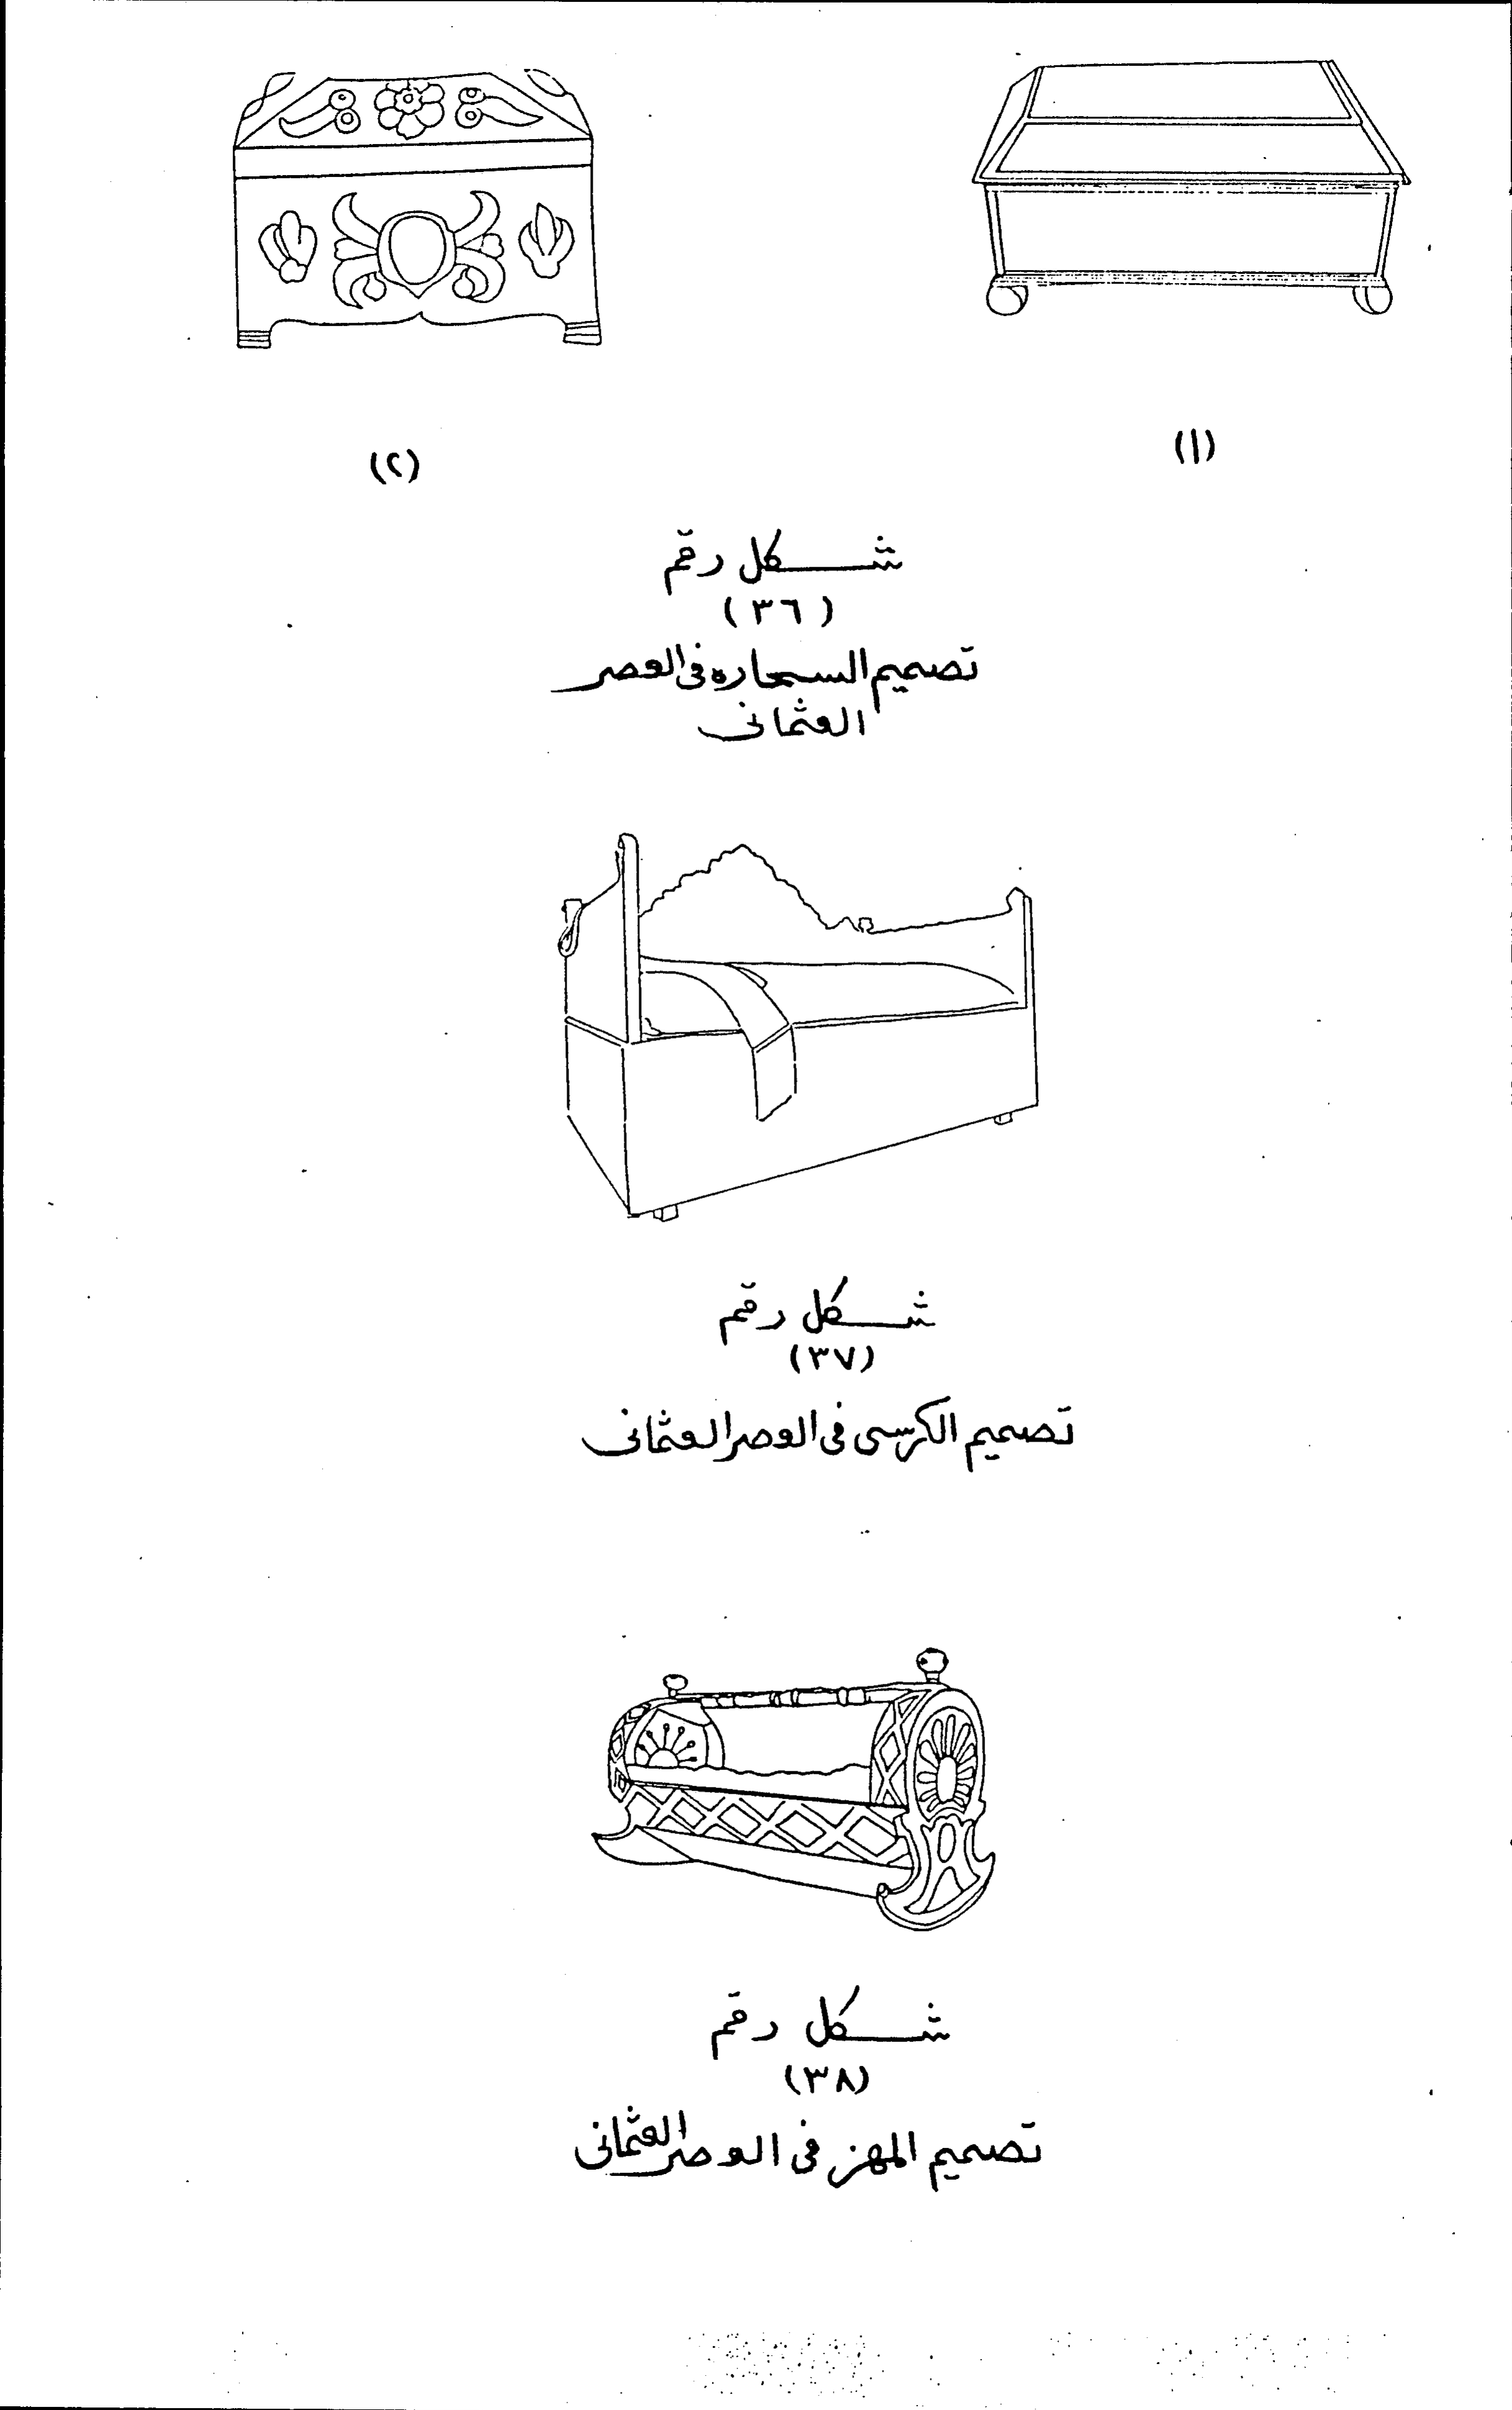 (١)
(٢)
شكل رقم
(٣٦)
تصميم السحاره فى العصر
العثمانى
شكل رقم
(٣٧)
تصميم الكرسى فى العصر العثمانى
شكل رقم
(٣٨)
تصميم المهز فى العصر العثمانى